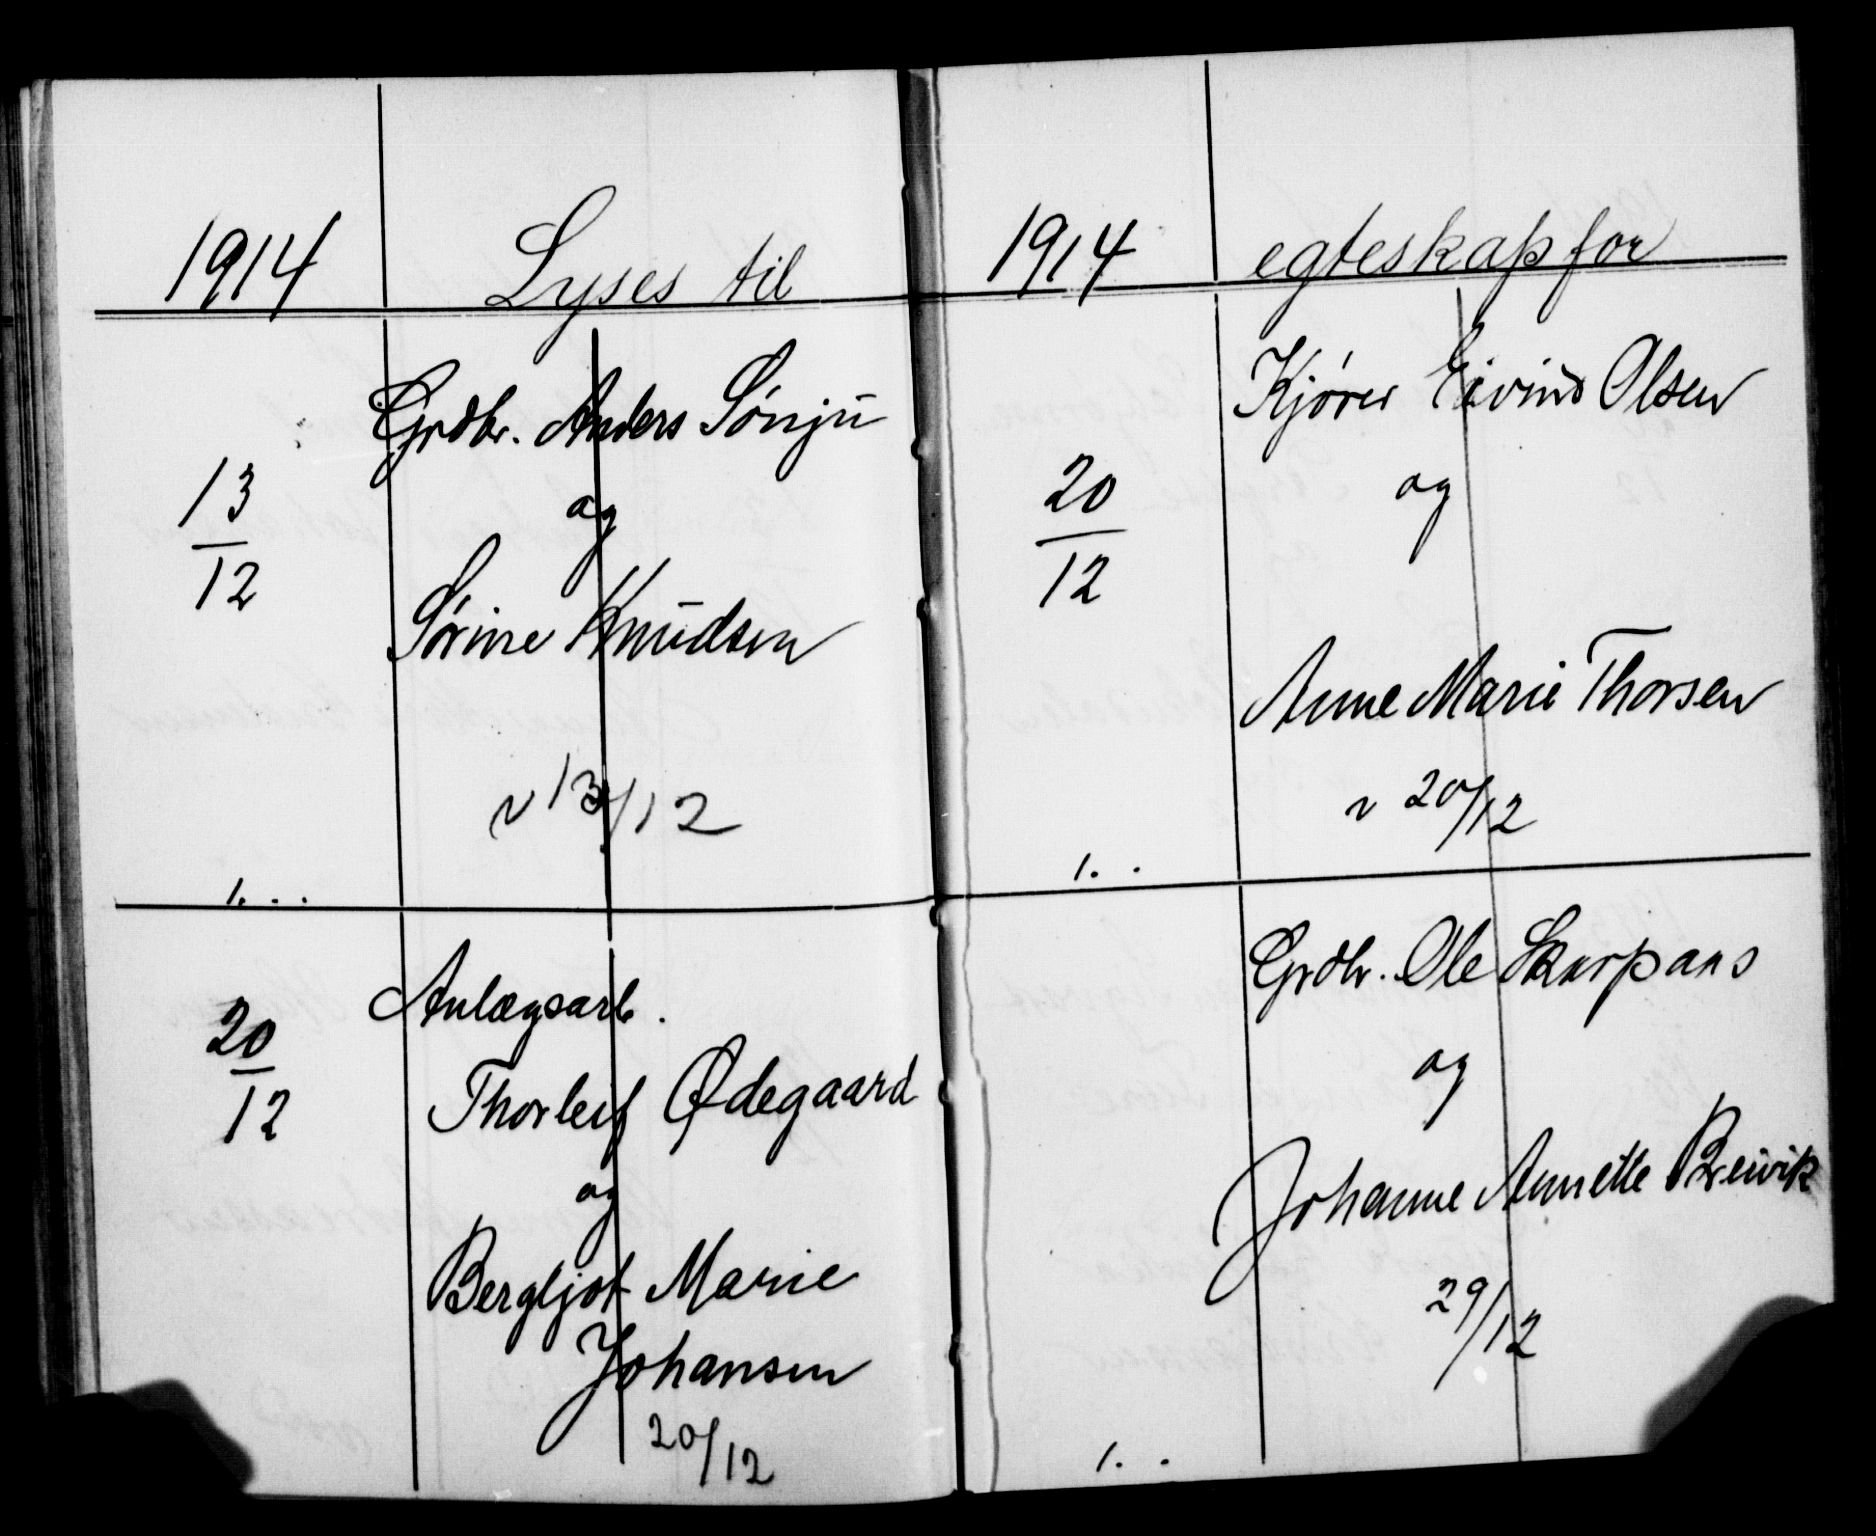 1914 Lyses til
Grdbr. Anders Sønju
13/12
og
Sørine Knudsen
v 13/12
1. . .
Anlægsarb.
20/12
Thorleif Ødegaard
og
Bergljot Marie
Johansen
20/12
1914 egteskap for
Kjører Eivind Olsen
20/12
og
Anne Marie Thorsen
v 20/12
1. .
Grdbr. Ole Skarpaas
og
Johanne Annette Breivik
29/12
1. .